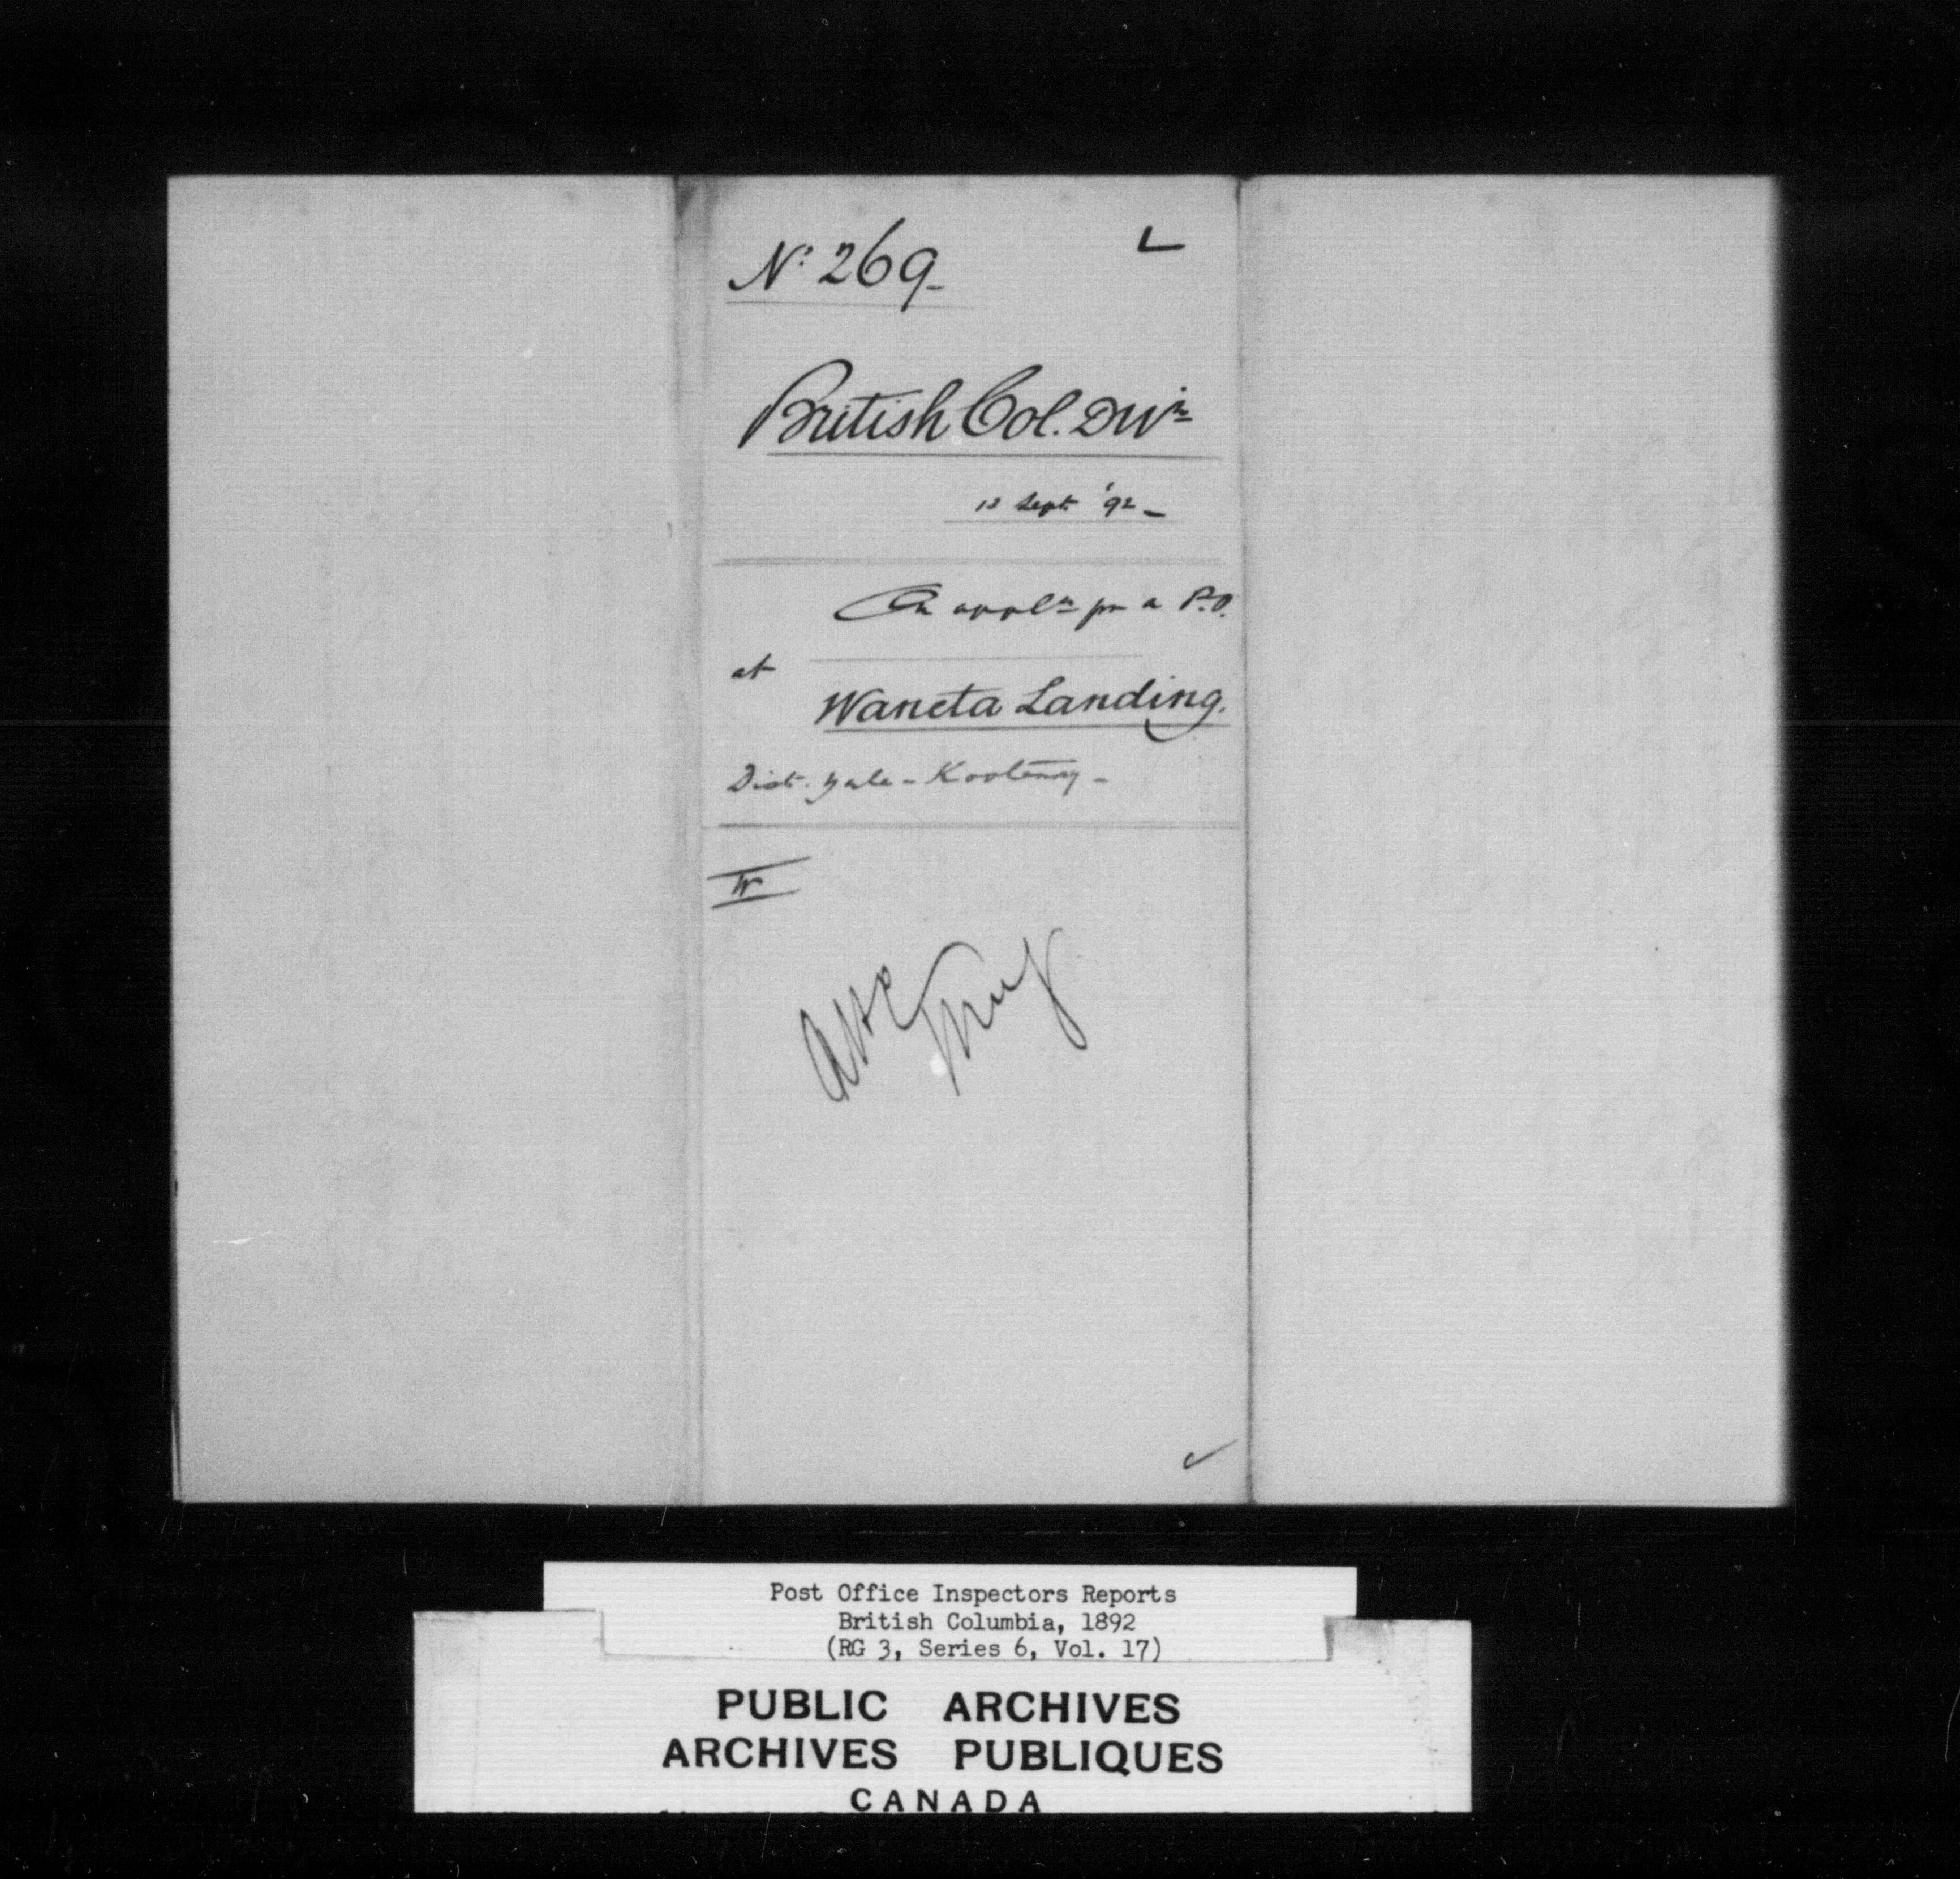 No. 269-
British Col. Divn
13 Sept. '92-
On appln for a P.O.
at
Waneta Landing.
Dist. Yale-Kootenay-
W
Post Office Inspectors Reports
British Columbia, 1892
(RG 3, Series 6, Vol. 17)
PUBLIC ARCHIVES
ARCHIVES PUBLIQUES
CANADA